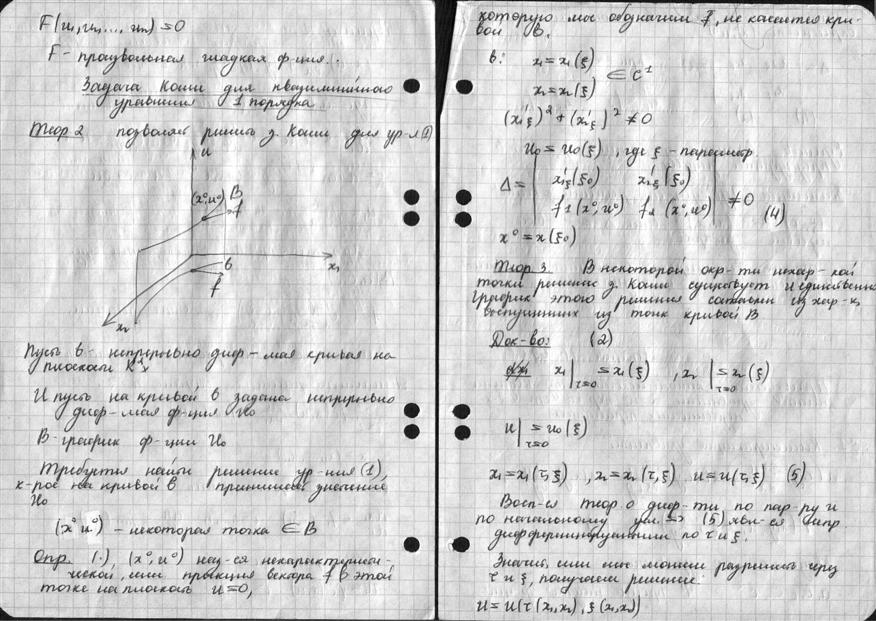 F(u₁, u₂, ..., uₙ) = 0
F - произвольная гладкая ф-ция.
Задача Коши для квазилинейного
уравнения 1 порядка
Теор 2 позволяет решить з. Коши для ур-я (1)
u
(x⁰, u⁰) B
f
x₁
в
f
x₂
Пусть в - непрерывно диф-мая кривая на
плоскости R²ₓ
И пусть на кривой в задана непрерывно
диф-мая ф-ция u₀
B - график ф-ции u₀
Требуется найти решение ур-ния (1),
к-рое на кривой в принимает значение
u₀
(x⁰ u⁰) - некоторая точка ∈ B
Опр. (·) (x⁰, u⁰) наз-ся нехарактеристи-
ческой, если проекция вектора f в этой
точке на плоскость u=0,
которую мы обозначим f, не касается кри-
вой в.
в: x₁ = x₁(ξ)
∈ C¹
x₂ = x₂(ξ)
(x₁'ξ)² + (x₂'ξ)² ≠ 0
u₀ = u₀(ξ), где ξ - параметр.
Δ = | x₁'ξ(ξ₀) x₂'ξ(ξ₀) |
| f₁(x⁰, u⁰) f₂(x⁰, u⁰) | ≠ 0 (4)
x⁰ = x(ξ₀)
Теор 3. В некоторой окр-ти нехар-кой
точки решение з. Коши существует и единственно
График этого решения составлен из хар-к,
выпущенных из точек кривой B
Док-во: (2)
x₁|τ=0 = x₁(ξ), x₂|τ=0 = x₂(ξ)
u|τ=0 = u₀(ξ)
x₁ = x₁(τ, ξ), x₂ = x₂(τ, ξ) u = u(τ, ξ) (5)
Восп-ся теор о диф-ти по пар-ру и
по начальному усл. => (5) явл-ся непр.
дифференцируемыми по τ и ξ.
Значит, если мы можем разрешить через
τ и ξ, получаем решение:
u = u(τ(x₁, x₂), ξ(x₁, x₂))